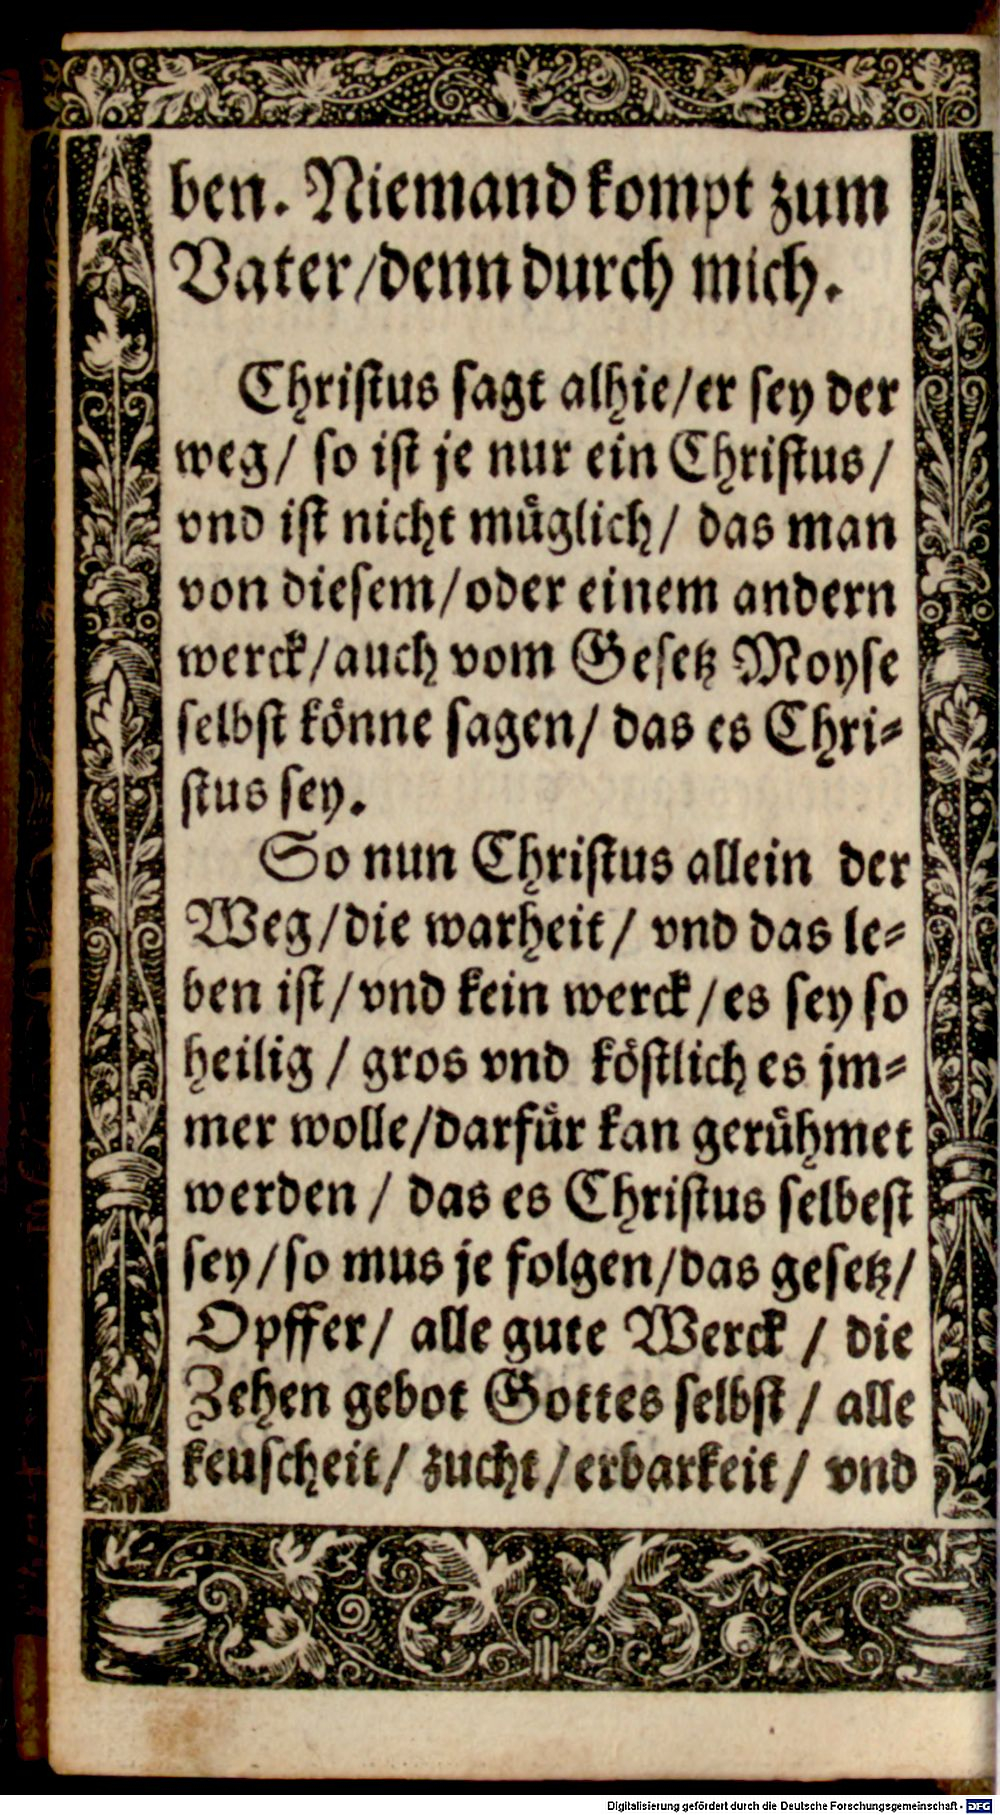 ben. Niemand kompt zum
Vater/denn durch mich.
Christus sagt alhie/er sey der
weg/ so ist je nur ein Christus/
vnd ist nicht müglich/ das man
von diesem/oder einem andern
werck/auch vom Gesetz Moyse
selbst könne sagen/ das es Chri-
stus sey.
So nun Christus allein der
Weg/die warheit/ vnd das le-
ben ist/vnd kein werck/es sey so
heilig / gros vnd köstlich es jm-
mer wolle/darfür kan gerühmet
werden / das es Christus selbest
sey/so mus je folgen/das gesetz/
Opffer/ alle gute Werck / die
Zehen gebot Gottes selbst / alle
keuscheit/ zucht/erbarkeit/ vnd
Digitalisierung gefördert durch die Deutsche Forschungsgemeinschaft - DFG